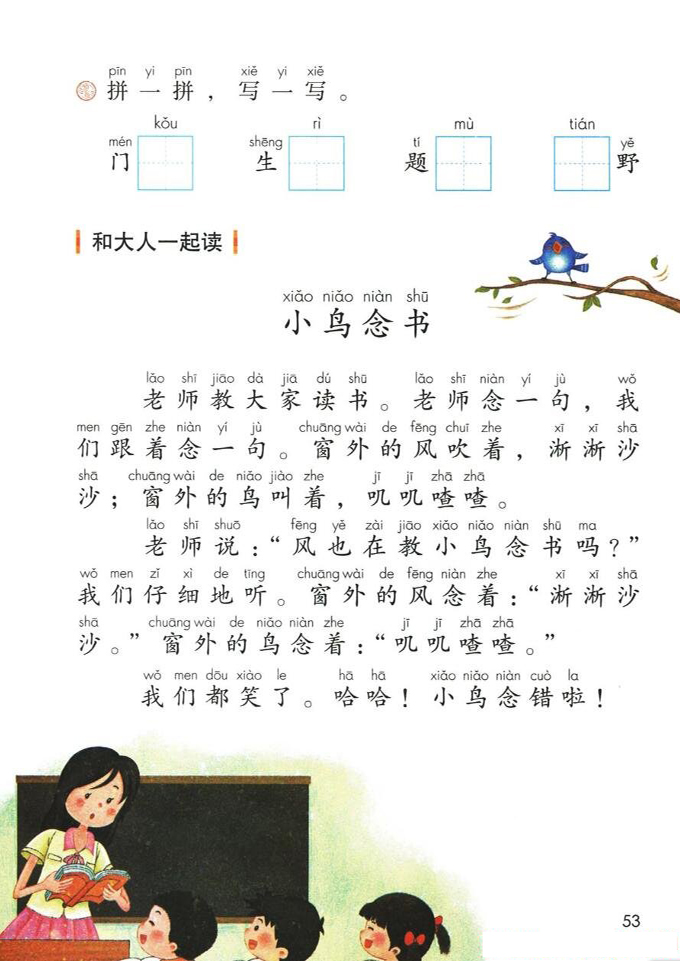 pīn yi pīn xiě yi xiě
拼一拼，写一写。
kǒu rì mù tián
mén shēng tí yě
门 生 题 野
和大人一起读
xiǎo niǎo niàn shū
小鸟念书
lǎo shī jiāo dà jiā dú shū lǎo shī niàn yí jù wǒ
老师教大家读书。老师念一句，我
men gēn zhe niàn yí jù chuāng wài de fēng chuī zhe xī xī shā
们跟着念一句。窗外的风吹着，淅淅沙
shā chuāng wài de niǎo jiào zhe jī jī zhā zhā
沙；窗外的鸟叫着，叽叽喳喳。
lǎo shī shuō fēng yě zài jiāo xiǎo niǎo niàn shū ma
老师说：“风也在教小鸟念书吗？”
wǒ men zǐ xì de tīng chuāng wài de fēng niàn zhe xī xī shā
我们仔细地听。窗外的风念着：“淅淅沙
shā chuāng wài de niǎo niàn zhe jī jī zhā zhā
沙。”窗外的鸟念着：“叽叽喳喳。”
wǒ men dōu xiào le hā hā xiǎo niǎo niàn cuò la
我们都笑了。哈哈！小鸟念错啦！
53